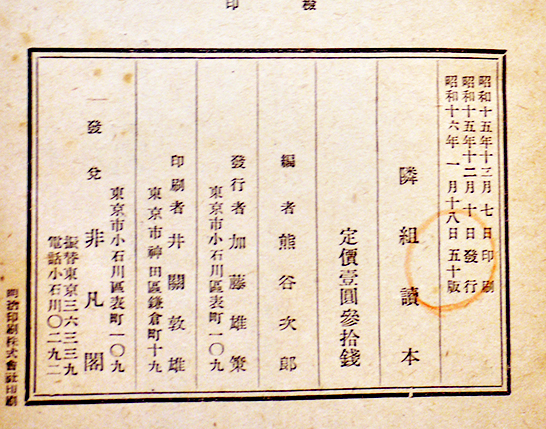 檢印
昭和十五年十二月七日印刷
昭和十五年十二月十日發行
昭和十六年一月十八日五十版
隣組讀本
定價壹圓參拾錢
編者 熊谷次郎
發行者 加藤雄策
東京市小石川區表町一〇九
印刷者 井關敦雄
東京市神田區鎌倉町十九
東京市小石川區表町一〇九
發兌 非凡閣
振替東京三六三三九
電話小石川〇二九二
明治印刷株式會社印刷